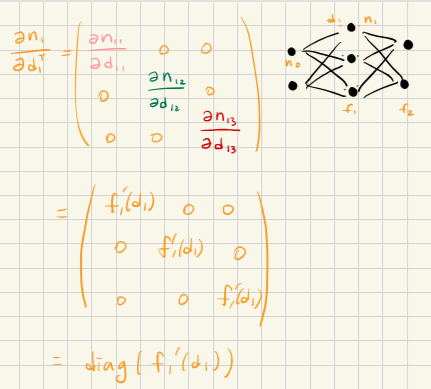 ∂n₁/∂d₁ᵀ = ( ∂n₁₁/∂d₁₁ 0 0
0 ∂n₁₂/∂d₁₂ 0
0 0 ∂n₁₃/∂d₁₃ )
d₁ n₁
n₀
f₁ f₂
= ( f₁'(d₁) 0 0
0 f₁'(d₁) 0
0 0 f₁'(d₁) )
= diag(f₁'(d₁))